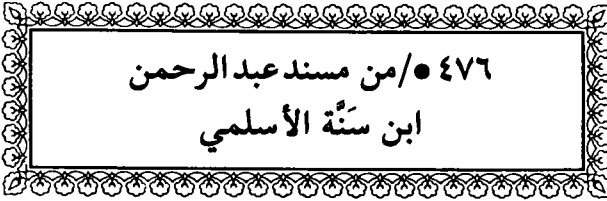 ٤٧٦ ●/من مسند عبد الرحمن
ابن سَنَّة الأسلمي